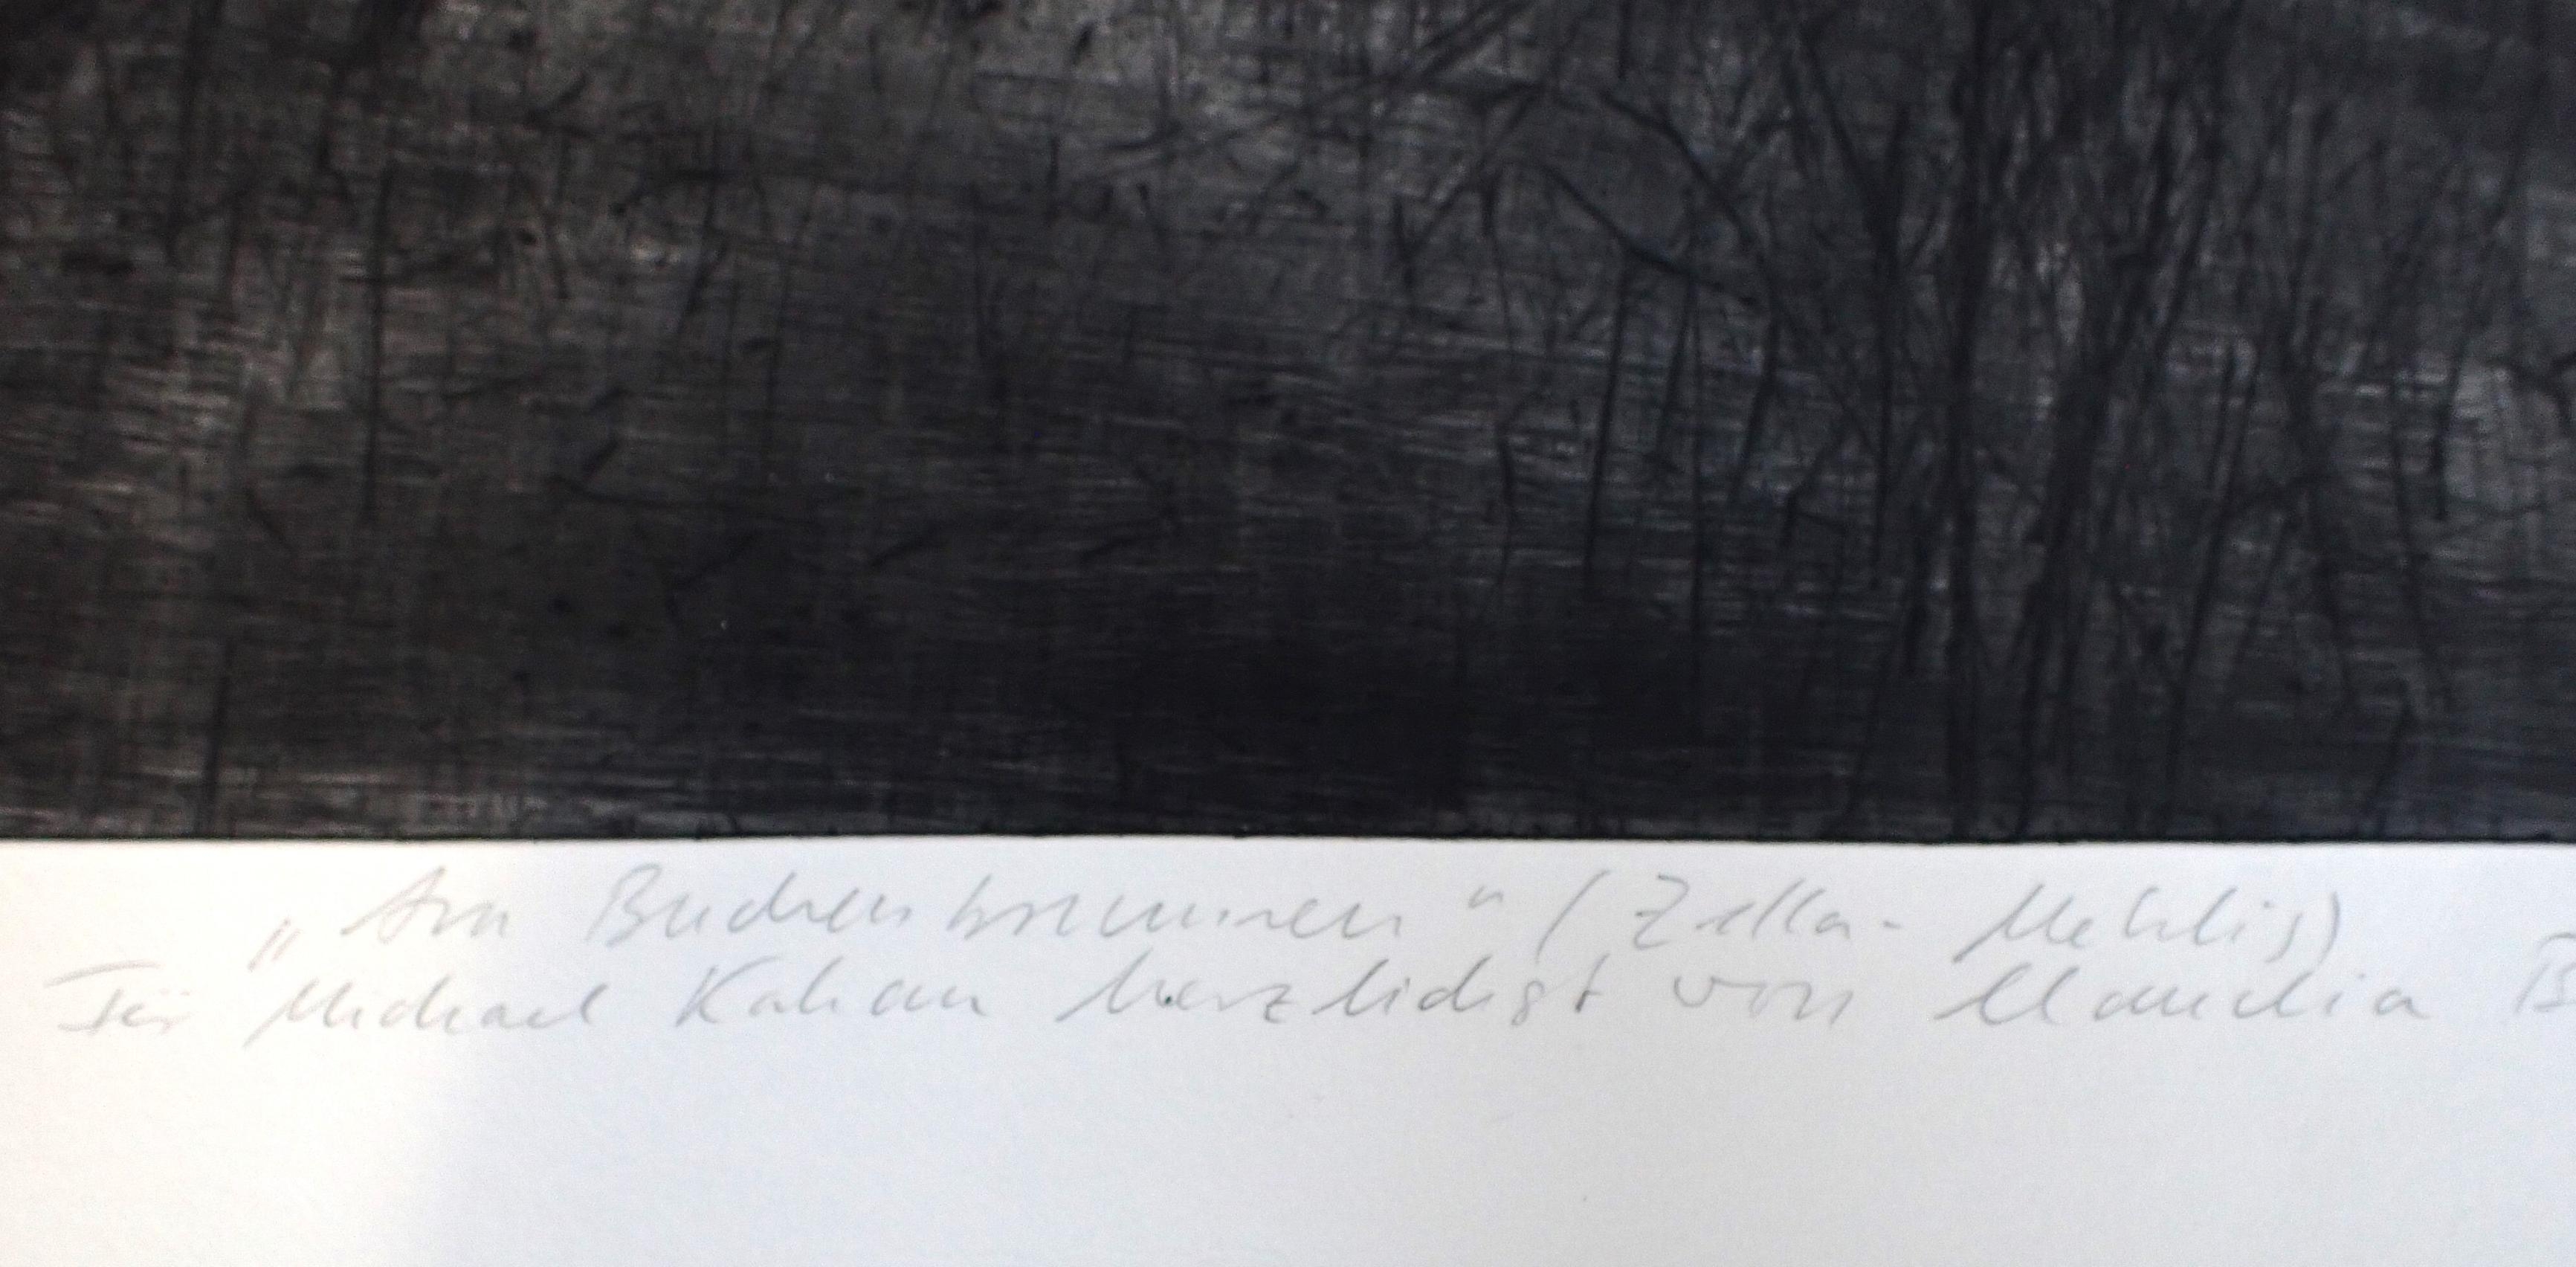 „Am Buchenbrunnen" (Zella-Mehlis)
Für Michael Kahan herzlichst von Claudia B